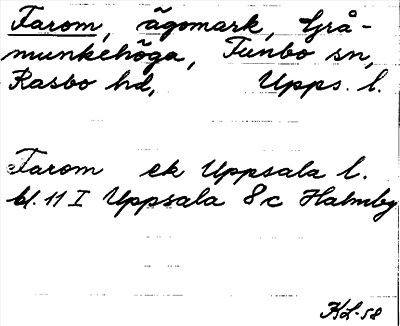 Farom, ägomark, Grå-
munkehöga, Funbo sn,
Rasbo hd, Upps. l.
Farom ek Uppsala l.
bl. 11 I Uppsala 8c Halmby
KL-58